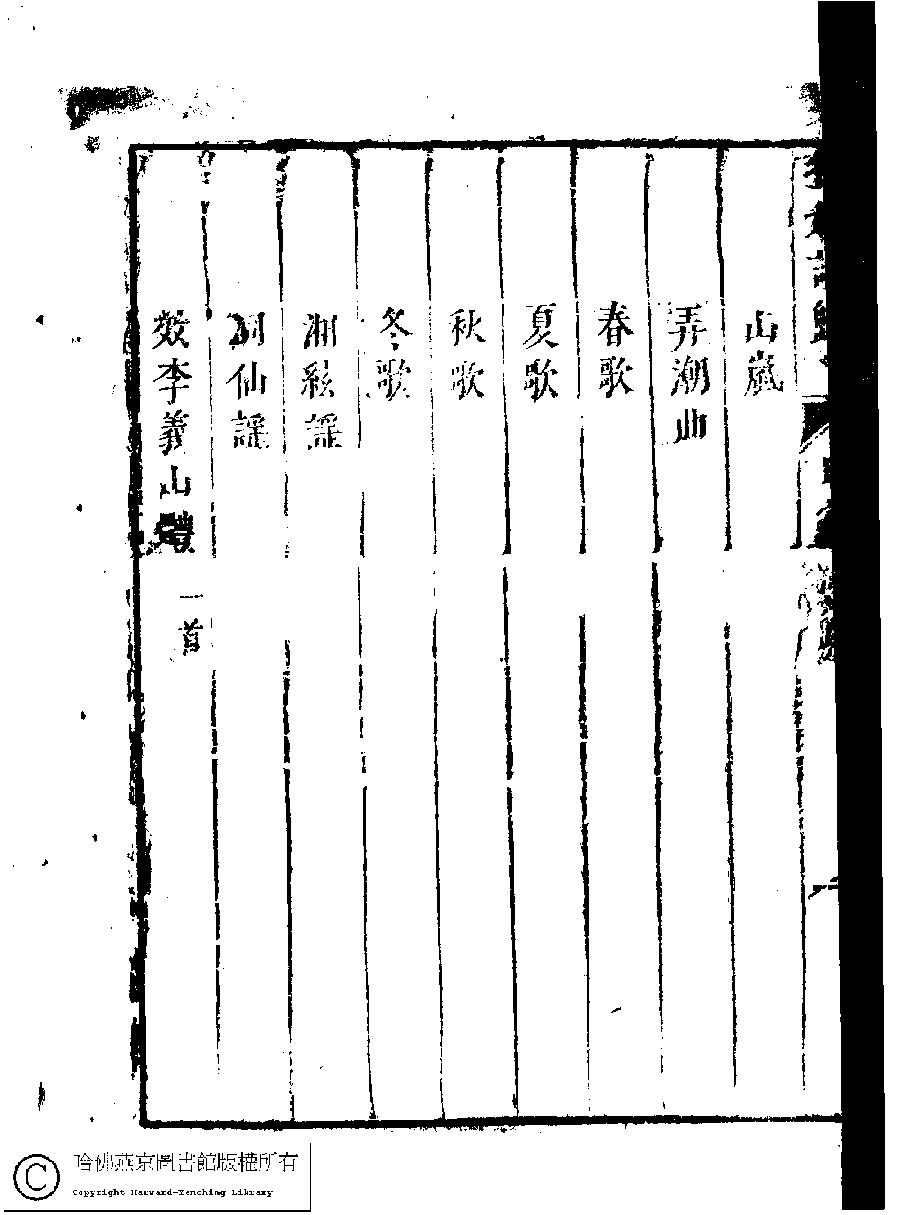 山嵐
弄潮曲
春歌
夏歌
秋歌
冬歌
湘絃謡
洞仙謡
效李義山體 一首
哈佛燕京圖書館版權所有
Copyright Harvard-Yenching Library